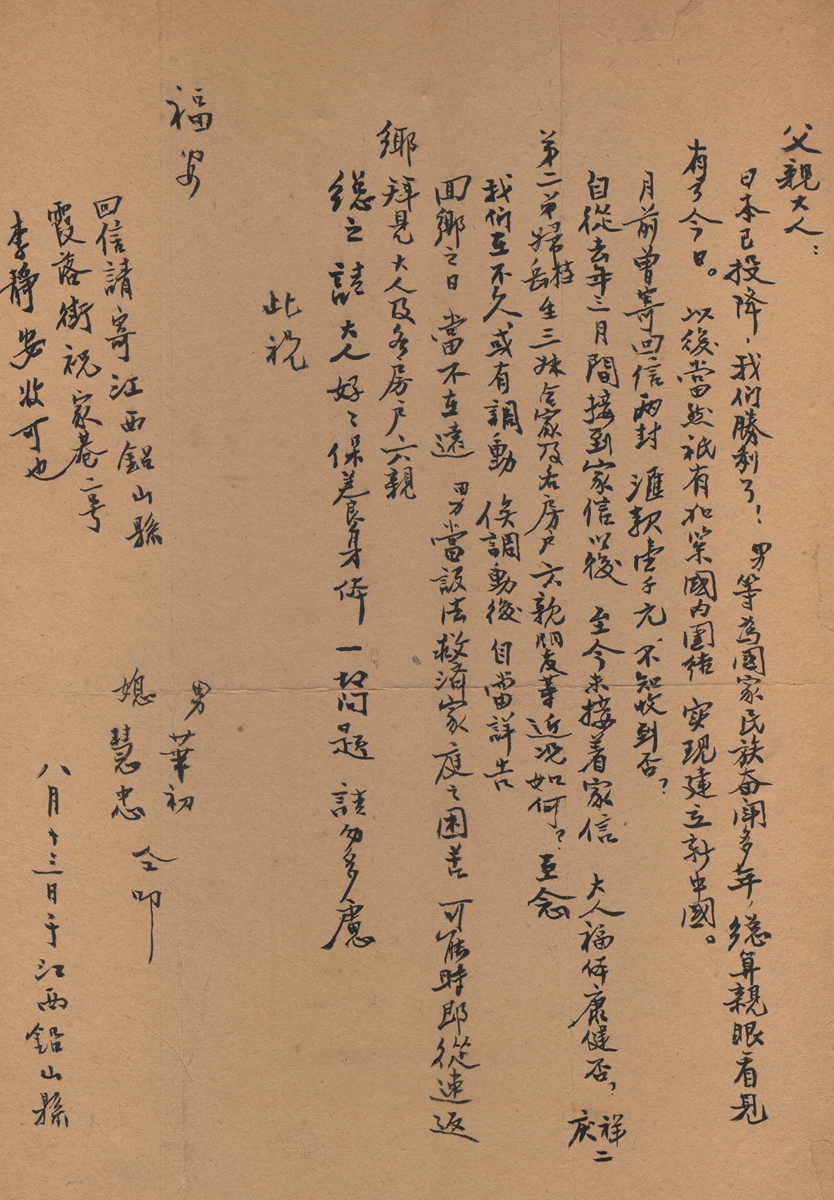 父親大人：
日本已投降，我们勝利了！男等為國家民族奋闘多年，總算親眼看見
有了今日。以後當然祇有加緊國内團结 实現建立新中國。
月前曾寄回信兩封 滙款壹千元，不知收到否？
自從去年三月間接到家信以後 至今未接着家信 大人福体康健否？祥庆二
弟二弟婦 岳生三妹全家及各房户六親朋友等近况如何？至念
我们在不久或有調動 俟調動後自當詳告
回鄉之日 當不在遠 男當設法救济家庭之困苦 可能時即從速返
鄉拜見大人及各房户六親
總之 請大人好々保养身体 一切问题 請勿多慮
此祝
福安
男 華初
媳 慧忠 仝叩
回信請寄江西鉛山縣
霞落街祝家巷二号
李静安收可也
八月十三日于江西鉛山縣